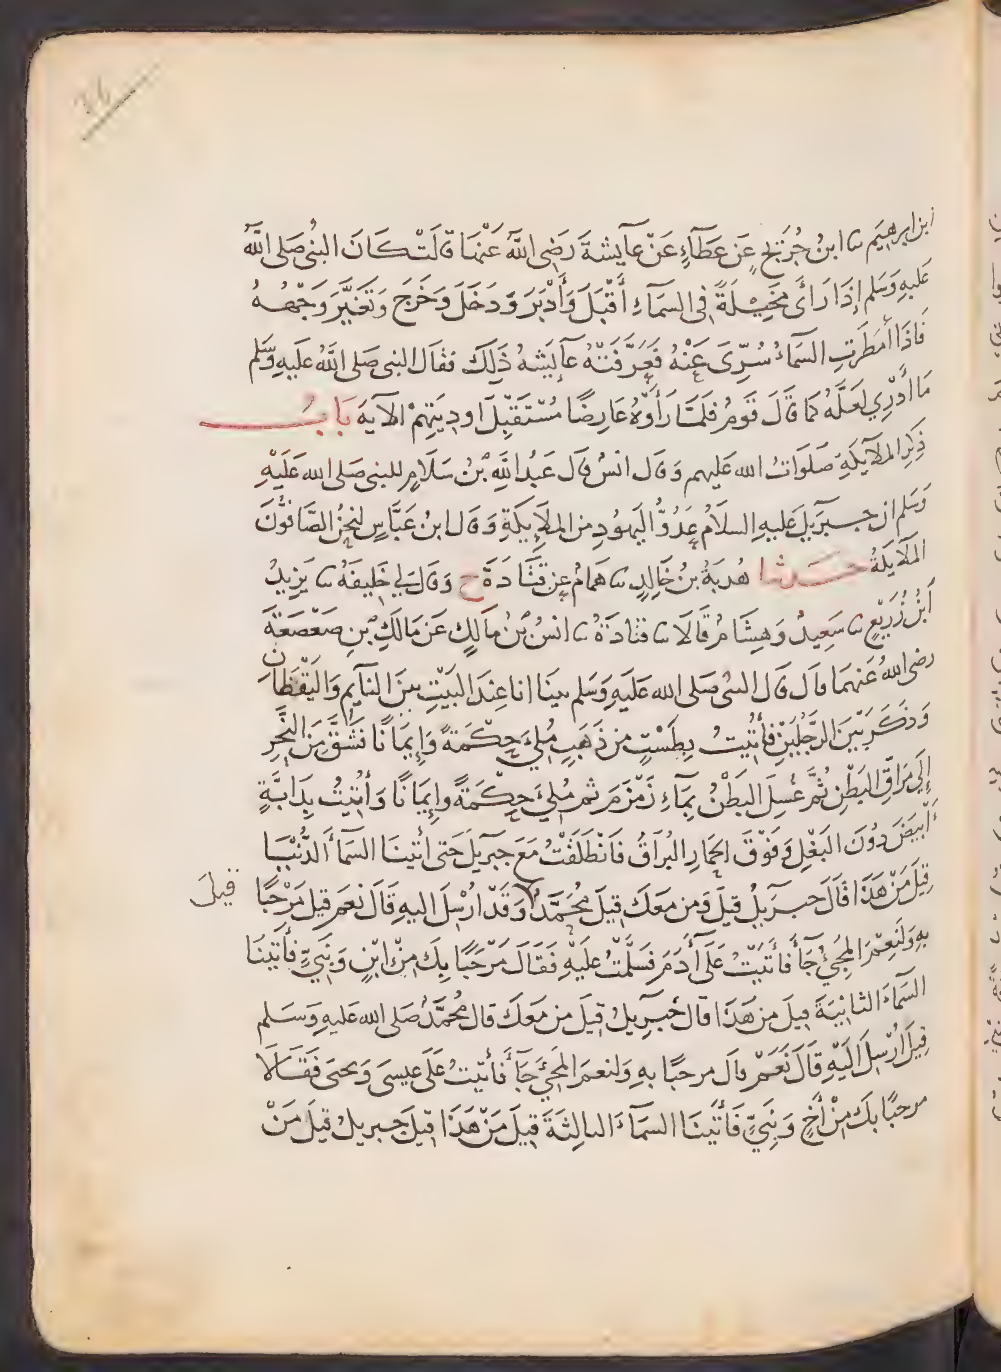 ابن ابرهيم ثنا ابنُ جُرَيجٍ عَن عَطَآءٍ عَنْ عَآيشةَ رَضِيَ اللهُ عَنْهَا قَالَتْ كَانَ النبيُ صَلى اللهُ
عَليهِ وَسَلم إذَا رَأى مَخِيْلَةً فِى السَمَآءِ أَقْبَلَ وَأَدْبَرَ وَدَخَلَ وَخَرَجَ وَتَغَيَّرَ وَجْهُهُ
فَاذَا أَمطَرَتِ السَمَآءُ سُرِّىَ عَنْهُ فَعَرَّفَتْهُ عَآيشةُ ذَلِكَ فقَالَ النبى صَلى اللهُ عَليهِ وَسَلم
مَا أَدْرِي لعَلَّهُ كمَا قَالَ قَومٌ فَلمَّا رَأَوْهُ عَارِضًا مُسْتَقبِلَ اودِيَتِهِمْ الآيَه بَابُ
ذِكرِ المَلآيكَةِ صَلَوَاتُ الله عَليهم وَقَال انسٌ قَال عَبدُ اللَّهِ بْنُ سَلَامٍ للنبى صَلى الله عَليْهِ
وَسَلم ان جبرَيلَ عَليهِ السلامُ عَدُوُّ اليَهُودِ مِنَ المَلآيكَةِ وَقَال ابنُ عَبَّاسٍ لَنحنُ الصَّافُّونَ
المَلآيكَةُ حَدثنا هُدبَةُ بنُ خَالِدٍ ثنا هَمَامٌ عن قَتَادَةَ ح وَقَالَ لِي خَلِيفَهُ ثنا يَزِيدُ
ابْنُ زُرَيْعٍ ثنا سَعِيدٌ وَهِشَامٌ قَالَا ثنا قتَادَهُ ثنا انسُ بْنُ مَالِكٍ عَن مَالكِ بْنِ صَعْصَعَةَ
رضى اللهُ عَنهمَا قال قَالَ النبىُ صَلى الله عَليْهِ وَسَلم بَينَا انا عِندَ البَيْتِ بينَ النَآيمِ وَاليَقْظَانِ
وَذكَرَ بَيْنَ الرَّجُلَيْنِ فأُتِيتُ بِطَسْتٍ من ذَهَبٍ مُلِئَ حِكْمَةً وَإِيمَانًا فَشُقَّ مِنَ النَّحْرِ
إلَى مَرَاقِّ البَطْنِ ثُمَّ غُسِلَ البَطْنُ بِمَآءِ زَمْزَمَ ثم مُلِئَ حِكْمَةً وإِيمَانًا وَأُتِيتُ بِدَابَّةٍ
أَبْيَضَ دُونَ البَغْلِ وَفَوْقَ الحِمَارِ البُرَاقُ فَانْطَلَقْتُ مَعَ جبرِيلَ حَتى أتَينَا السَمَآءَ الدُّنْيَا
قِيلَ مَنْ هَذَا قَالَ جبرَيلُ قِيلَ وَمن مَعَكَ قِيلَ مُحَمَّدٌ وَقَدْ ارُسِلَ اليهِ قَالَ نَعَم قِيلَ مَرْحَبًا
قيلَ
بهِ وَلَنِعْمَ المجِيُ جَآءَ فَأتَيْتُ عَلَى أدَمَ فَسَلَّمْتُ عَلَيْهِ فَقَالَ مَرْحَبًا بِكَ مِنْ ابْنٍ وَنَبِيٍّ فَأتَيْنَا
السَمَآءَ الثانيَةَ قيلَ مَن هَذَا قالَ جبرِيلُ قيلَ من مَعَكَ قال مُحَمَّدٌ صَلى الله عَليهِ وَسَلم
قِيلَ ارُسِلَ اليْهِ قَالَ نَعَمْ قالَ مرحبًا بهِ وَلنعمَ المجِئُ جَآءَ فَأتَيتُ عَلَى عيسَى وَيحيَى فَقَالَا
مرحبًا بكَ مِنْ أَخٍ وَنَبِيٍّ فَأتَينَا السَمَآءَ الثالِثَةَ قِيلَ مَنْ هَذَا قيلَ جبريلُ قيلَ مَنْ